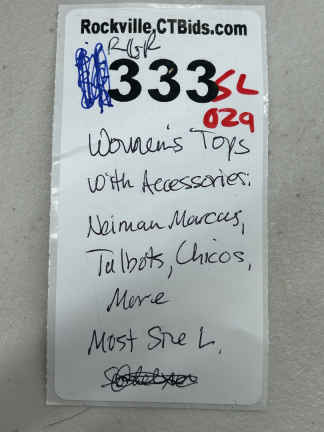 Rockville.CTBids.com
RGR
333 SL
029
Women's Tops
with Accessories:
Neiman Marcus,
Talbots, Chicos,
More
Most Size L,